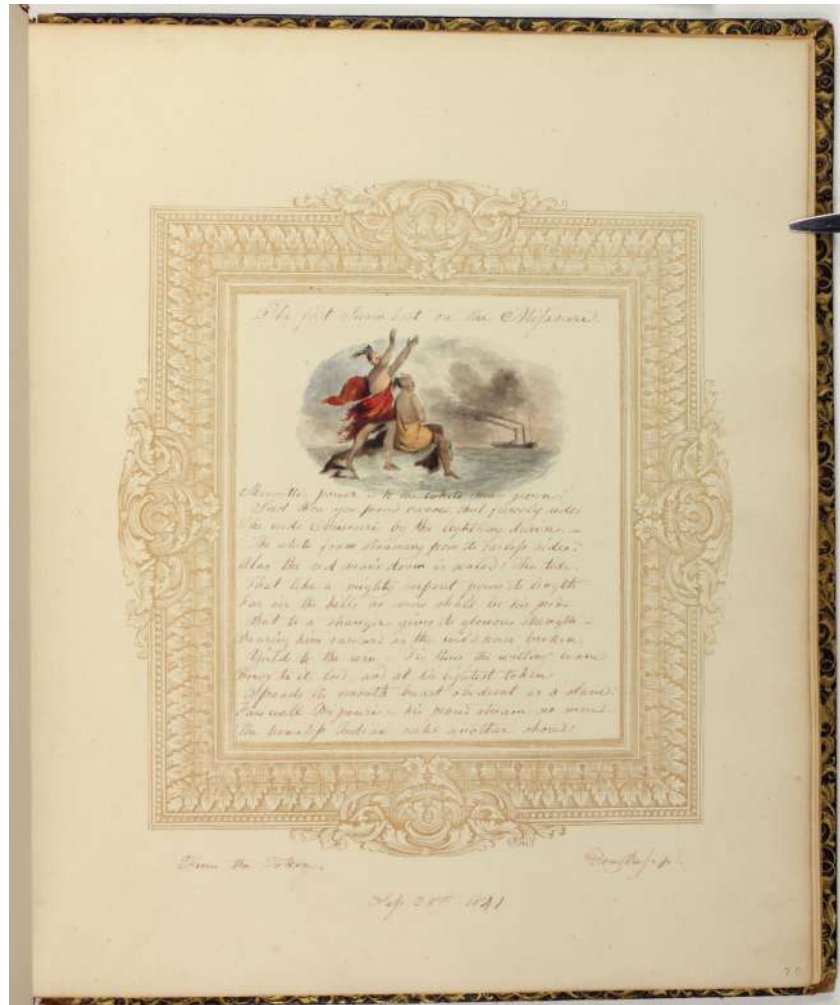 The first Steam boat on the Missouri
power is to the white man given!
proud canoe that fiercely rides
The wide Missouri by the lightning driven,–
The white foam streaming from its sides!
Alas the red man's doom is sealed. The tide
That like a mighty serpent pours its length
Far oer the hills no more shall be his pride
But to a stranger gives its glorious strength –
Bearing him onward as the wild horse broken
Yields to the rein – Tis thus the wave
Bows to its lord and at his lightest token
Spreads its smooth breast obedient as a slave!
Farewell Missouri – his proud stream no more
The homeless Indian seeks another shore!
From the Token.
Sep 28th 1841
70